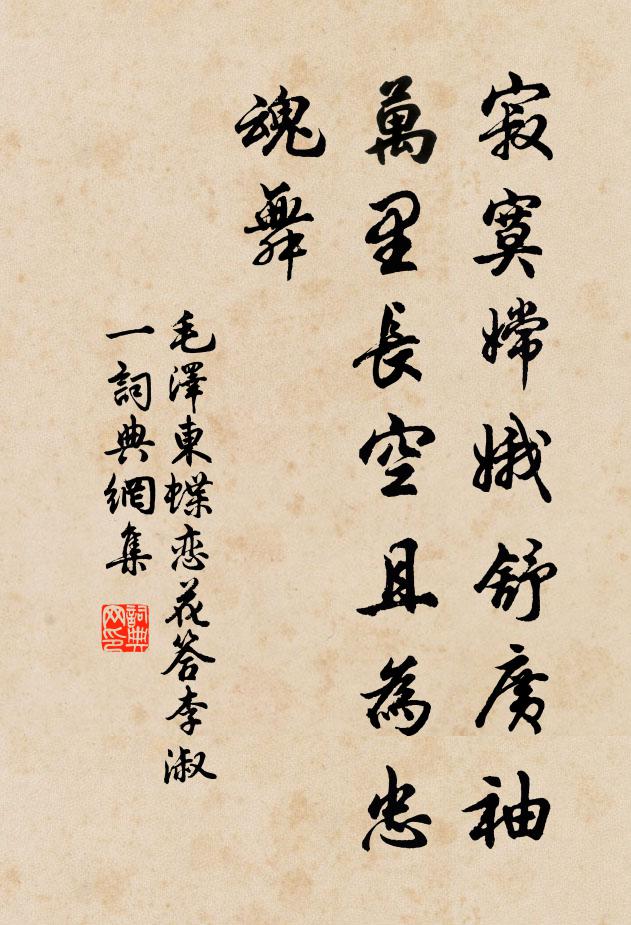 寂寞嫦娥舒廣袖
萬里長空且為忠
魂舞
毛澤東蝶恋花答李淑
一詞典網集
詞典网印